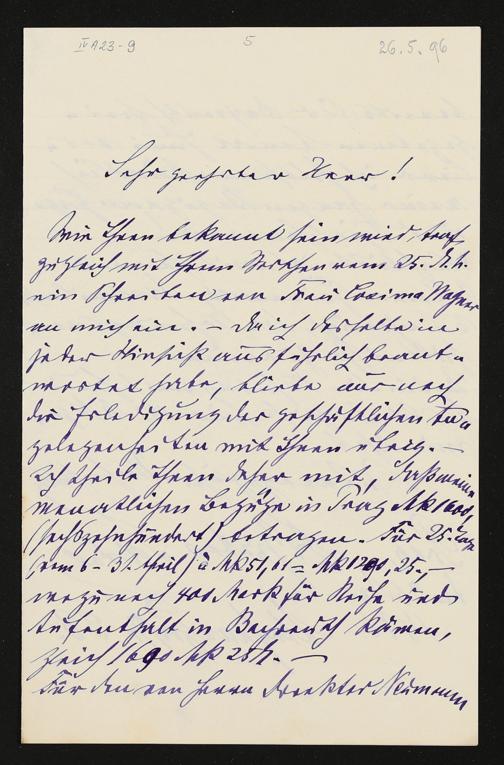 IV A 23-9
5
26.5.96
Sehr geehrter Herr!
Wie Ihnen bekannt sein wird, traf
zugleich mit Ihrem Werthen vom 25. d. M.
ein Schreiben von Frau Cosima Wagner
an mich ein. – Da ich dasselbe in
jeder Hinsicht ausführlich beant-
wortet habe, bliebe nur noch
die Erledigung der geschäftlichen An-
gelegenheiten mit Ihnen übrig. –
Ich theile Ihnen daher mit, daß meine
monatlichen Bezüge in Prag Mk 1600,
(sechszehnhundert) betragen. Für 25 Tage
(vom 6 - 31. ) à Mk 51,61 = Mk 1290,25.–,
wozu noch 400 Mark für Reise und
Aufenthalt in Bayreuth kämen,
gleich 1690 Mk 25 . –
Für den von Herrn Direktor Neumann